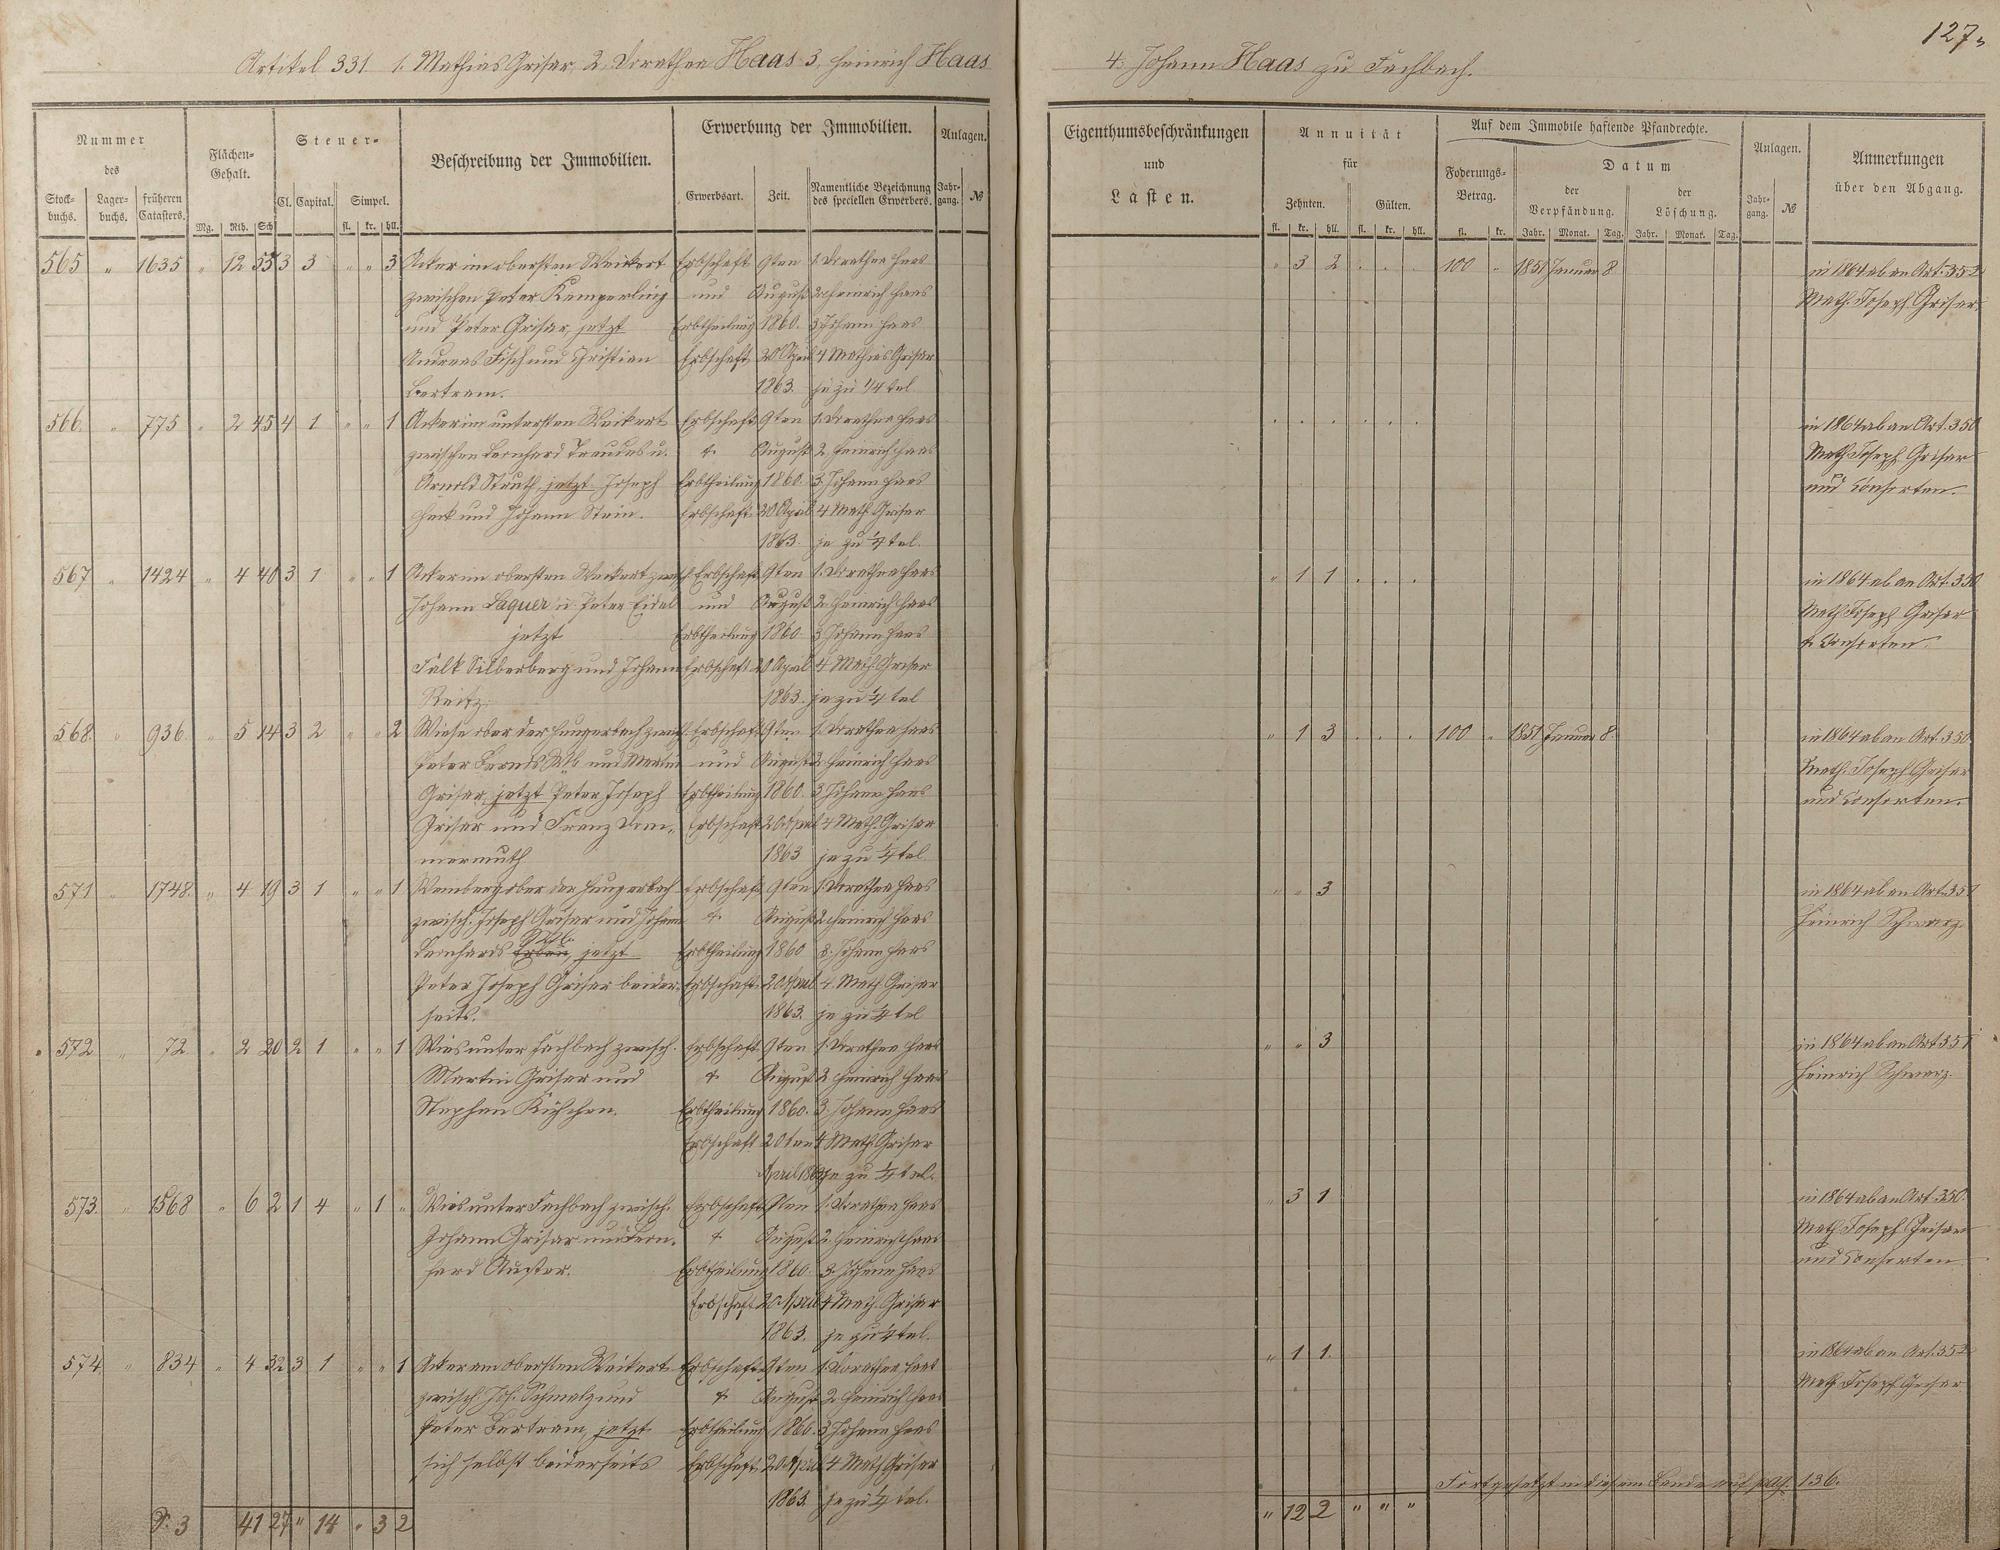 127.
Artikel 331. 1. Mathias Griser, 2. Dorathea Haas 3. Heinrich Haas 4. Johann Haas zu Fachbach.
Nummer des
Stockbuchs. Lagerbuchs. früheren Catasters.
Flächen-Gehalt.
Mg. Rth. Sch.
Steuer-
Cl. Capital. Simpel.
fl. kr. hll.
Beschreibung der Immobilien.
Erwerbung der Immobilien.
Erwerbsart. Zeit. Namentliche Bezeichnung des speciellen Erwerbers.
Anlagen.
Jahrgang. №
Eigenthumsbeschränkungen und Lasten.
Annuität für
Zehnten. Gülten.
fl. kr. hll. fl. kr. hll.
Auf dem Immobile haftende Pfandrechte.
Foderungs-Betrag.
fl. kr.
Datum
der Verpfändung. der Löschung.
Jahr. Monat. Tag. Jahr. Monat. Tag.
Anlagen.
Jahrgang. №
Anmerkungen über den Abgang.
565 " 1635 " 12 55 3 3 " " 3 Acker im obersten Weikert Erbschaft 9ten 1. Dorathea Haas " 3 2 . . . 100 " 1851 Januar 8 in 1864 ab an Art. 352
zwischen Peter Kemperling und August 2. Heinrich Haas Math. Joseph Griser.
und Peter Griser, jetzt Erbtheilung 1860. 3 Johann Haas
Andreas Fisch und Christian Erbschaft 20 April 4 Mathias Griser
Bertram. 1863. je zu 1/4 tel
566. " 775 " 2 45 4 1 " " 1 Acker im untersten Weikert Erbschaft 9ten 1. Dorathea Haas . . . . . . in 1864 ab an Art. 350
zwischen Bernhard Treudes u. & August 2. Heinrich Haas Math. Joseph Griser
Arnold Struth jetzt Joseph Erbtheilung 1860. 3. Johann Haas und Consorten.
und Johann Stein. Erbschaft 20 April 4 Math. Griser
1863. je zu 1/4 tel.
567 " 1424 " 4 40 3 1 " " 1 Acker im obersten Weikert zwisch. Erbschaft 9ten 1. Dorathea Haas " 1 1 . . . in 1864 ab an Art. 350
Johann Laquer u. Peter Eidel und August 2. Heinrich Haas Math. Joseph Griser
jetzt Erbtheilung 1860 3 Johann Haas & Consorten.
Falk Silberberg und Johann Erbschaft 20 April 4 Math. Griser
Reitz. 1863. je zu 1/4 tel
568. " 936. " 5 14 3 2 " " 2 Wiese ober der Hungerbach zwisch. Erbschaft 9ten 1. Dorathea Haas " 1 3 . . . 100 " 1851 Januar 8. in 1864 ab an Art. 350.
Peter Bernds Wtb. und Martin und August 2. Heinrich Haas Math. Joseph Griser
Griser, jetzt Peter Joseph Erbtheilung 1860. 3 Johann Haas und Consorten.
Griser und Franz Dom- Erbschaft 20 April 4 Math. Griser
mermuth 1863 je zu 1/4 tel.
571 " 1748. " 4 19 3 1 " " 1 Weinberg ober der Hungerbach Erbschaft 9ten 1. Dorathea Haas " " 3 in 1864 ab an Art. 351
zwisch. Joseph Griser und Johann & August 2. Heinrich Haas Heinrich Schwarz.
Bernhards Erben, jetzt Erbtheilung 1860 3. Johann Haas
Peter Joseph Griser beider- Erbschaft 20 April 4. Math Griser
seits. 1863. je zu 1/4 tel
572 " 72 " 2 20 2 1 " " 1 Wies unter Fachbach zwisch. Erbschaft 9ten 1. Dorathea Haas " " 3 in 1864 ab an Art 351
Martin Griser und & August 2. Heinrich Haas Heinrich Schwarz.
Stephan Kirchen. Erbtheilung 1860. 3. Johann Haas
Erbschaft 20ten 4 Math. Griser
April 1863 je zu 1/4 tel.
573. " 1568 " 6 2 1 4 " 1 " Wies unter Fachbach zwisch. Erbschaft 9ten 1. Dorathea Haas " 3 1 in 1864 ab an Art. 350.
Johann Griser und Bern- & August 2. Heinrich Haas Math. Joseph Griser
hard Auster. Erbtheilung 1860. 3. Johann Haas und Consorten
Erbschaft 20 April 4 Math. Griser
1863. je zu 1/4 tel.
574. " 834 " 4 32 3 1 " " 1 Acker am obersten Weikert Erbschaft 9ten 1. Dorathea Haas " 1 1. in 1864 ab an Art. 352
zwisch. Joh. Schmelz und & August 2. Heinrich Haas Math. Joseph Griser
Peter Bertram, jetzt Erbtheilung 1860. 3 Johann Haas
sich selbst beiderseits Erbschaft 20 April 4 Math Griser
1863. je zu 1/4 tel.
Fortgesetzt in diesem Bande auf pag. 136.
S. 3 41 27 " 14 " 3 2 " 12 2 " " "